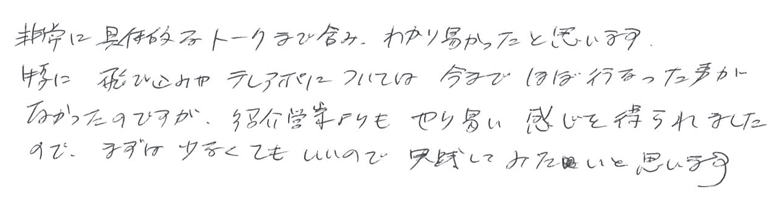 非常に具体的なトークまで含み、わかり易かったと思います。
特に 飛び込みや テレアポに ついては 今まで ほぼ行なった事が
なかったのですが、紹介営業よりも やり易い 感じを得られました
ので、まずは 少なくても いいので 実践して みたいと思います